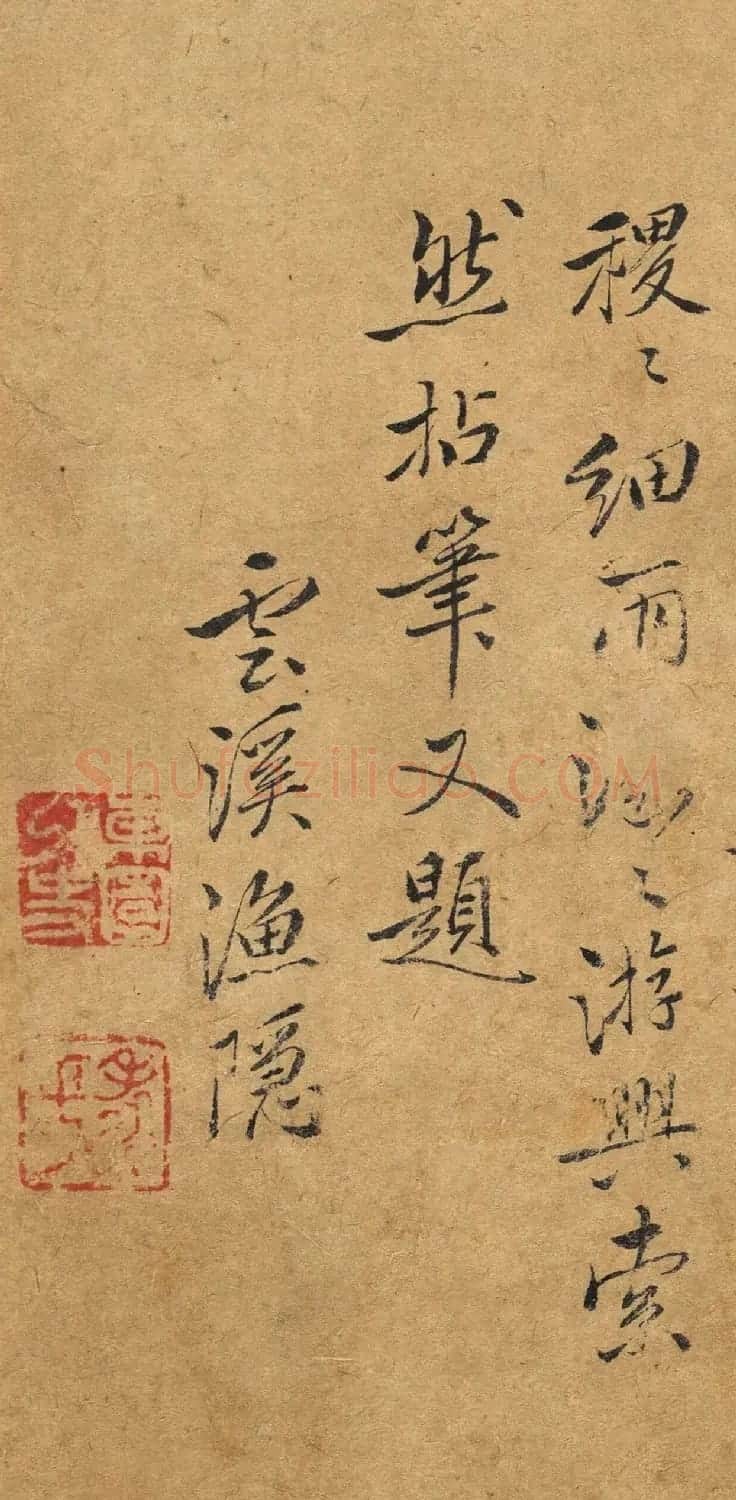 稷〻細雨〻游興索
然拈筆又題
雲溪漁隱
Shufaziliao.COM